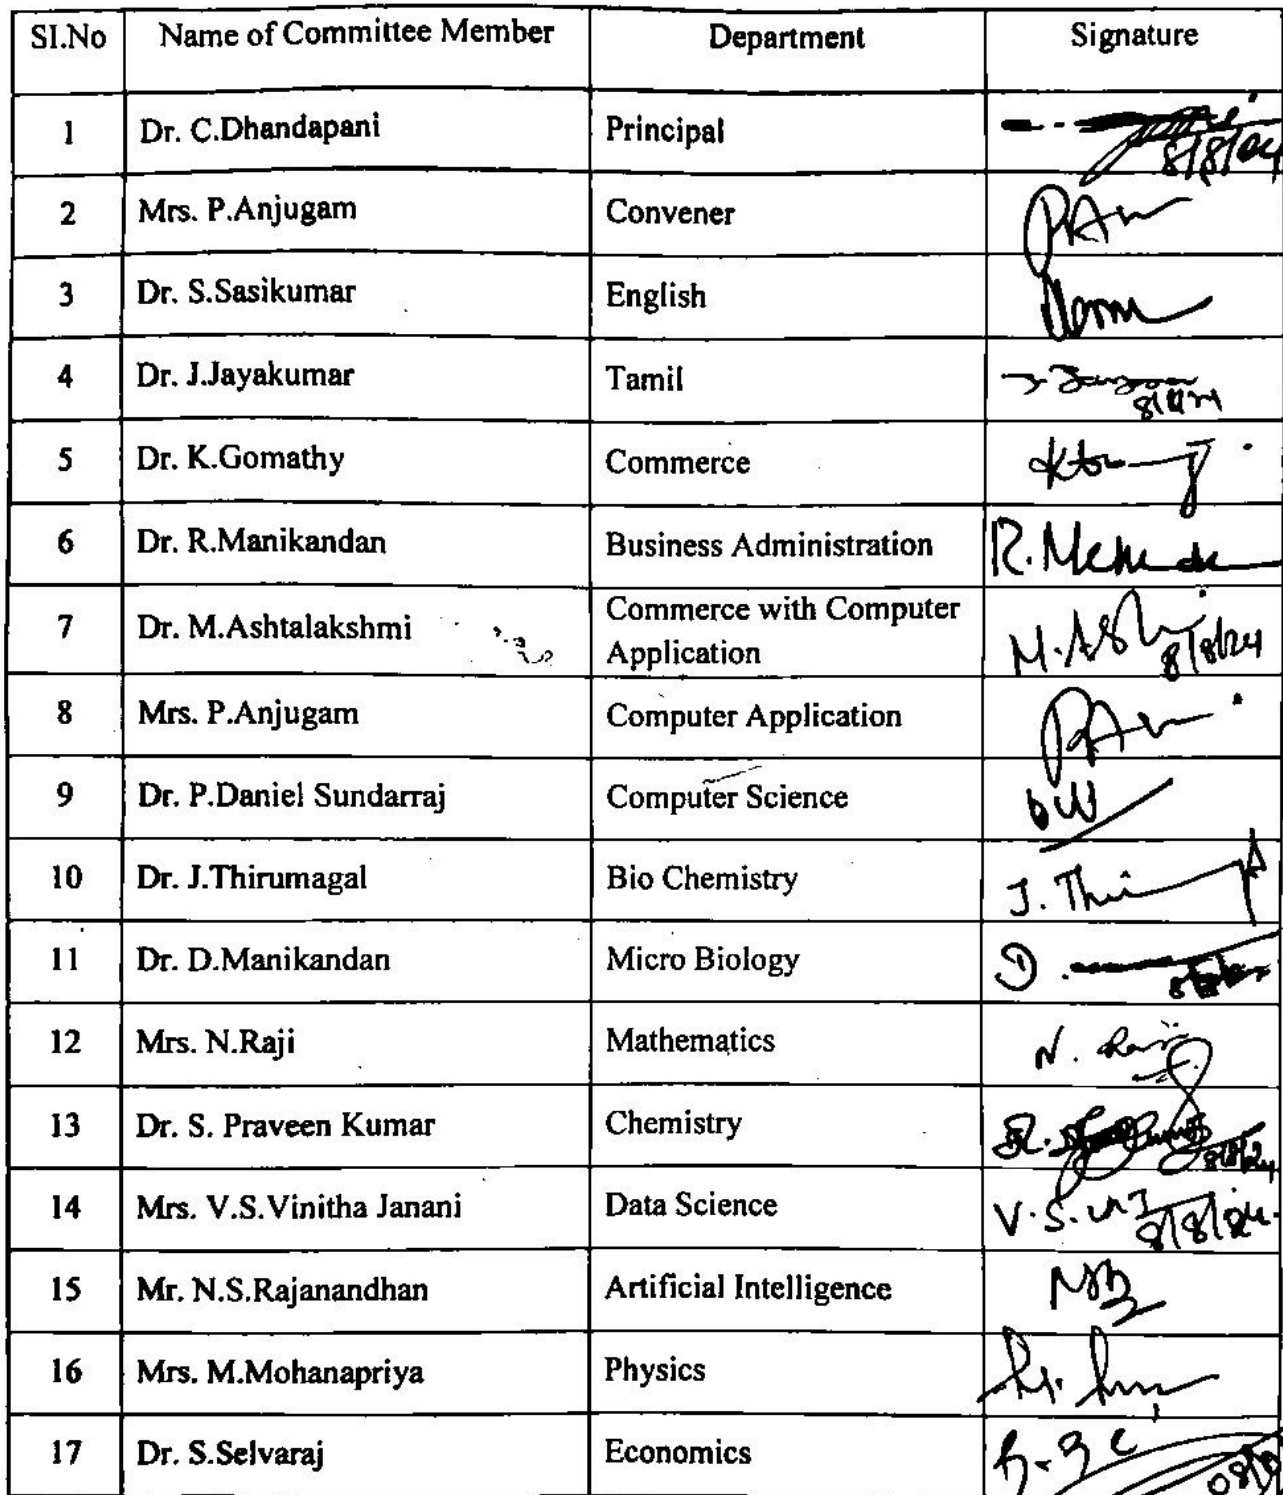 SI.No Name of Committee Member Department Signature
1 Dr. C.Dhandapani Principal 8/8/24
2 Mrs. P.Anjugam Convener
3 Dr. S.Sasikumar English
4 Dr. J.Jayakumar Tamil
5 Dr. K.Gomathy Commerce
6 Dr. R.Manikandan Business Administration R.
7 Dr. M.Ashtalakshmi Commerce with Computer
Application M.Ash 8/8/24
8 Mrs. P.Anjugam Computer Application
9 Dr. P.Daniel Sundarraj Computer Science
10 Dr. J.Thirumagal Bio Chemistry J. Thi
11 Dr. D.Manikandan Micro Biology D.
12 Mrs. N.Raji Mathematics N. Raji
13 Dr. S. Praveen Kumar Chemistry 8/8/24
14 Mrs. V.S.Vinitha Janani Data Science V.S. 8/8/24.
15 Mr. N.S.Rajanandhan Artificial Intelligence
16 Mrs. M.Mohanapriya Physics
17 Dr. S.Selvaraj Economics